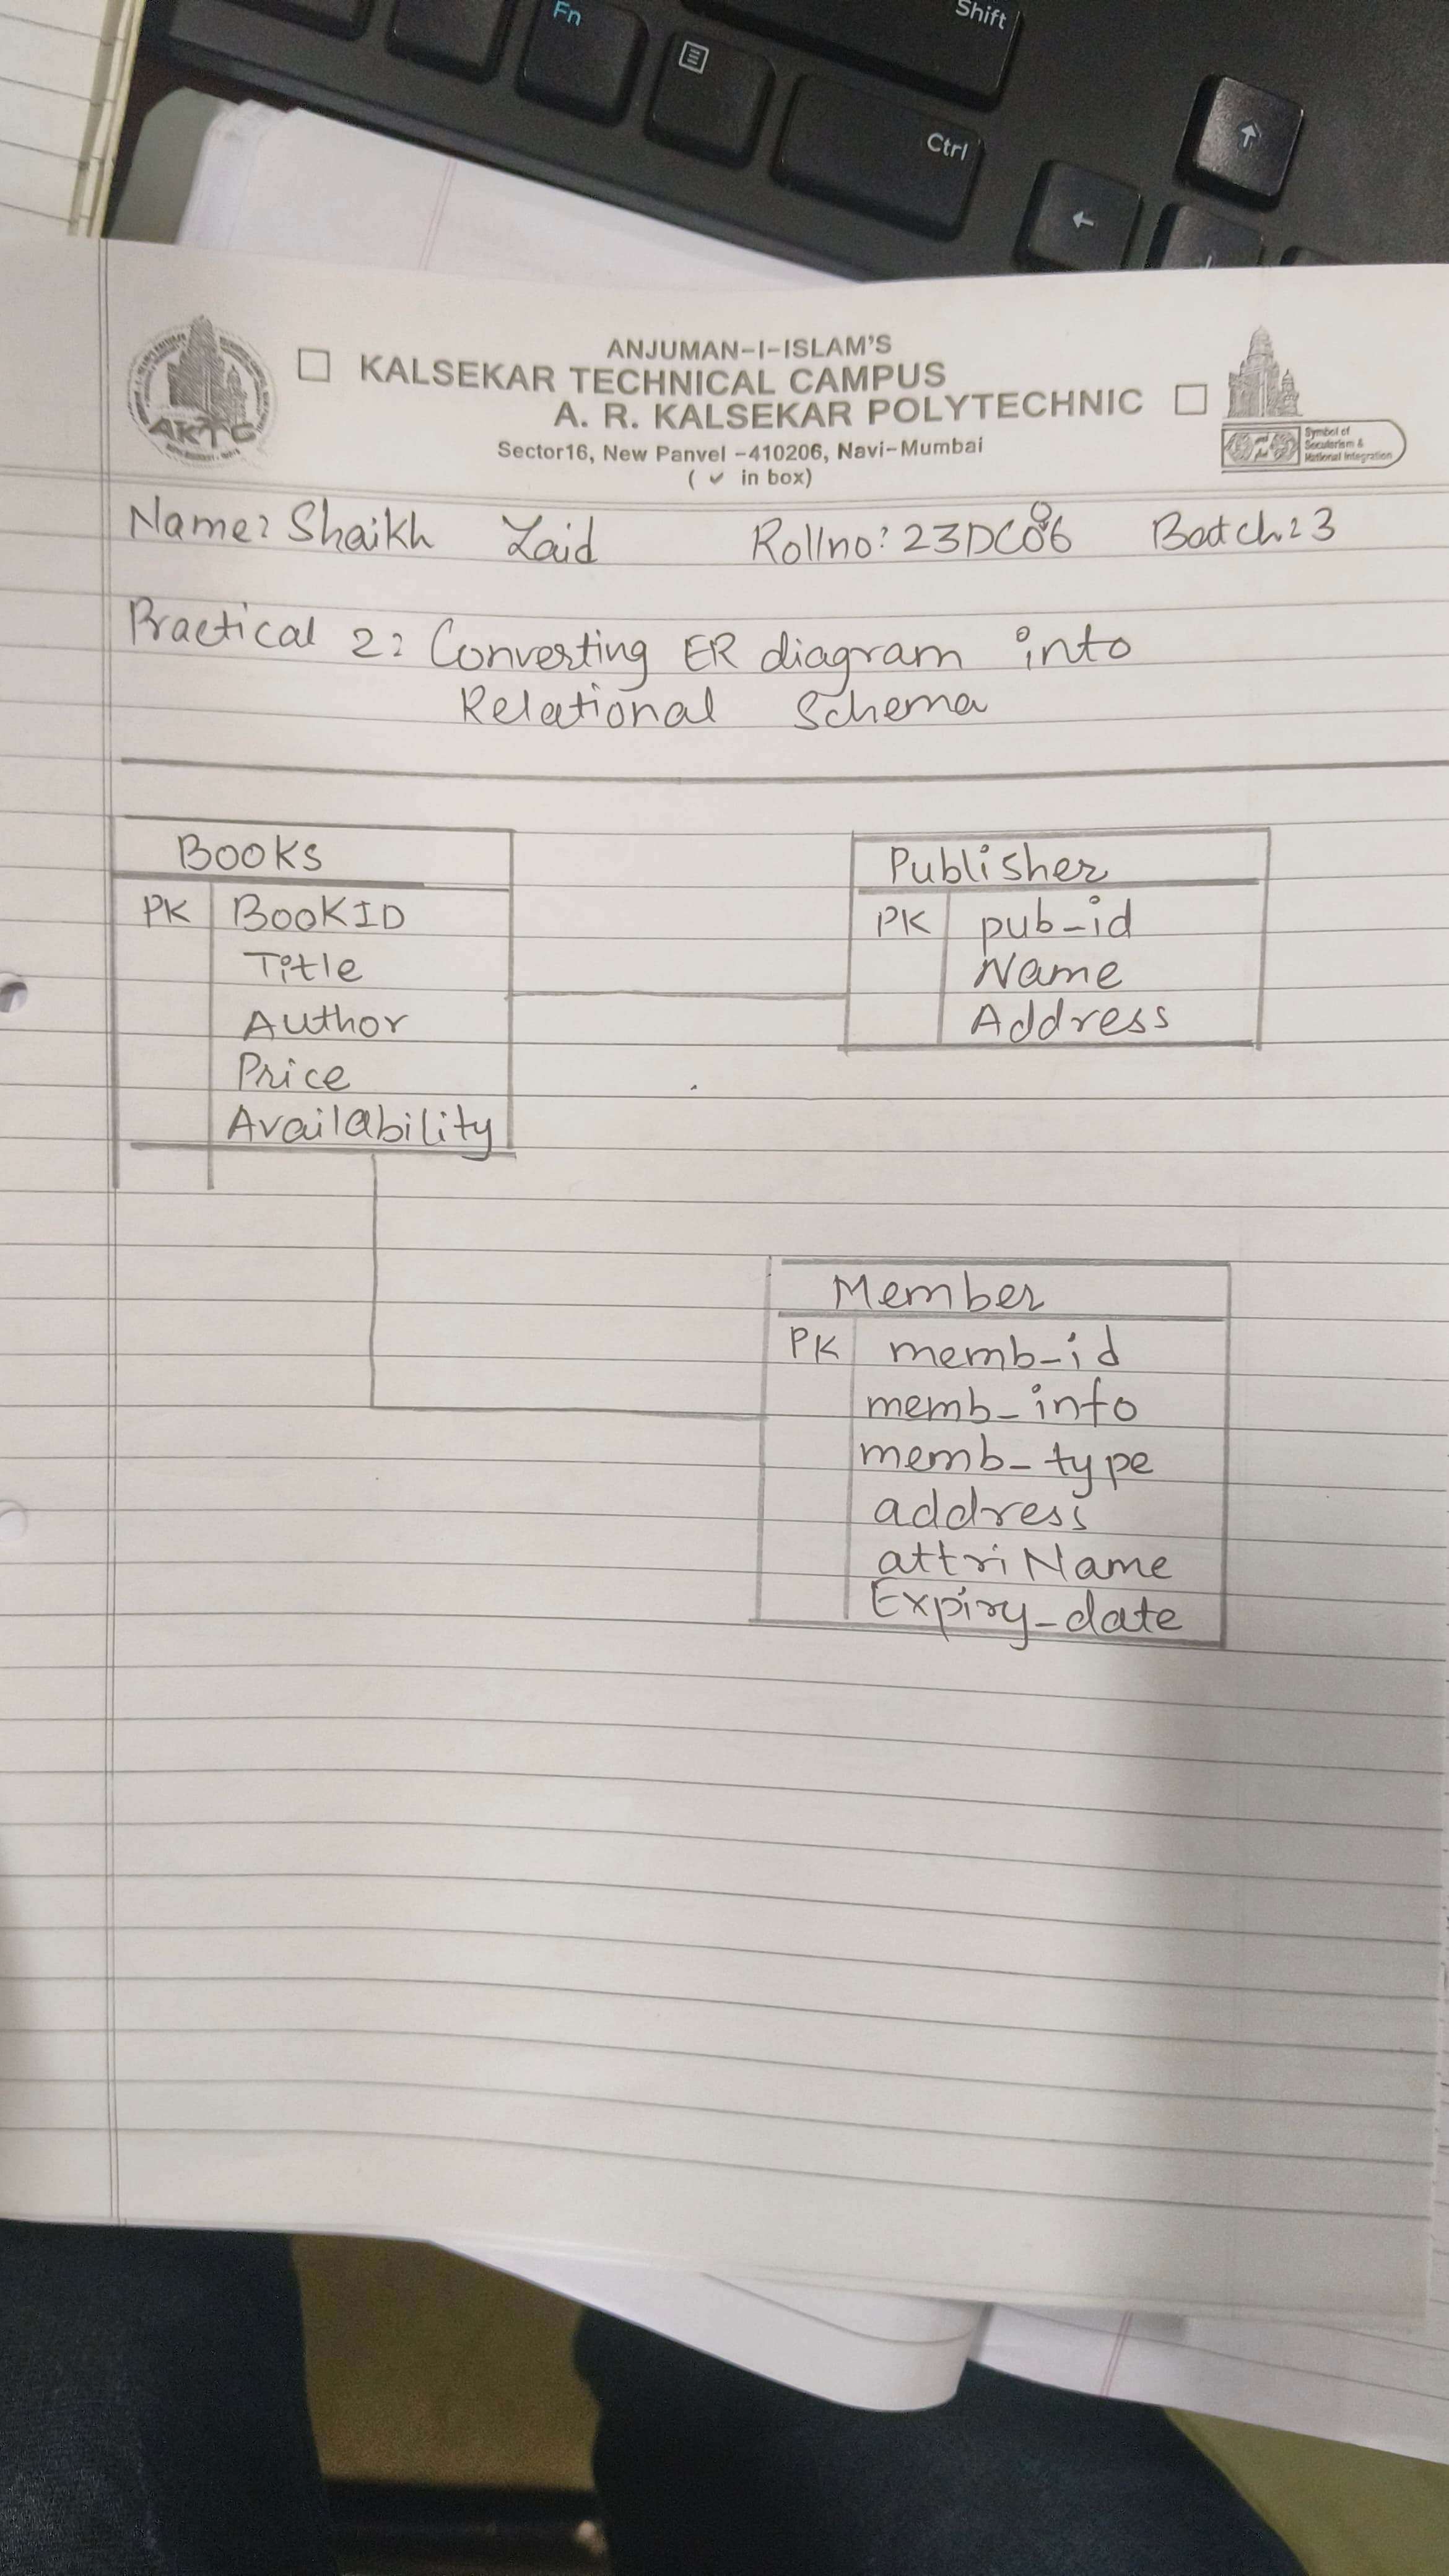 Fn
Shift
Ctrl
ANJUMAN-I-ISLAM'S
KALSEKAR TECHNICAL CAMPUS
A. R. KALSEKAR POLYTECHNIC
Sector16, New Panvel -410206, Navi-Mumbai
( ✓ in box)
AKTC
Symbol of
Secularism &
National Integration
Name: Shaikh Zaid Rollno: 23DCO86 Batch: 3
Practical 2: Converting ER diagram into
Relational Schema
Books
PK BookID
Title
Author
Price
Availability
Publisher
PK pub-id
Name
Address
Member
PK memb-id
memb-info
memb-type
address
attriName
Expiry-date